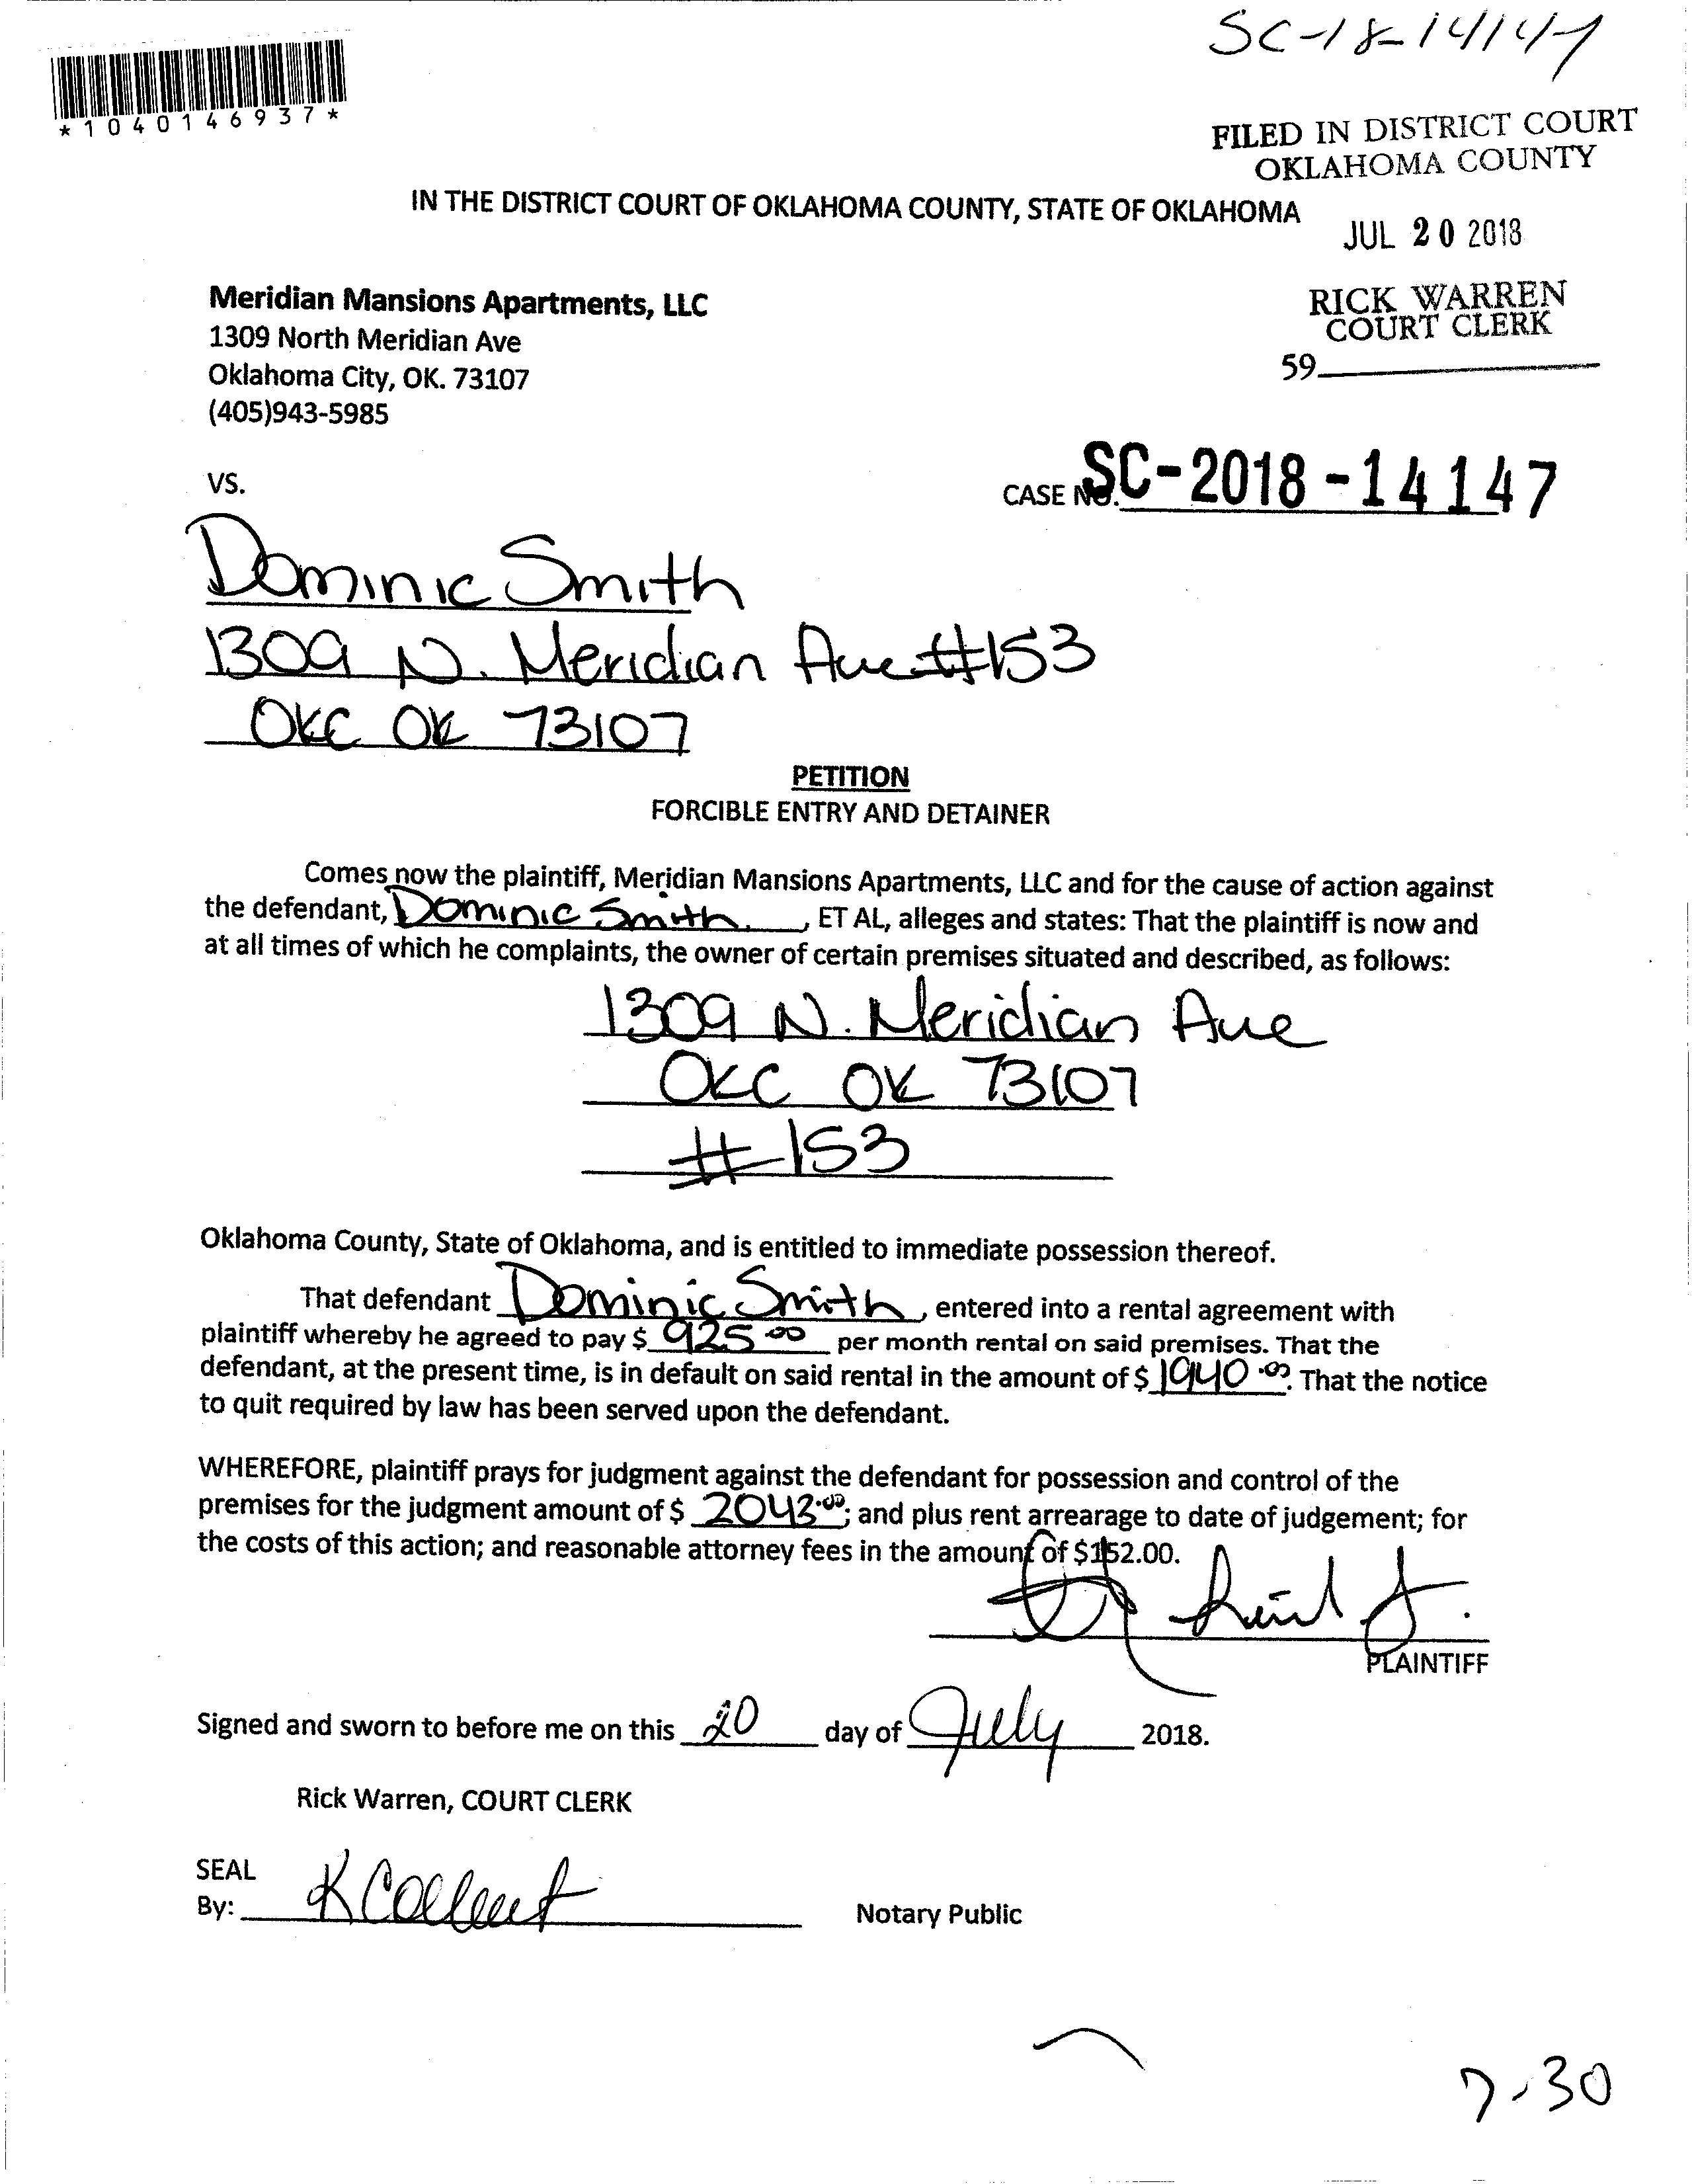 SC-18-14147
*1040146937*
FILED IN DISTRICT COURT
OKLAHOMA COUNTY
IN THE DISTRICT COURT OF OKLAHOMA COUNTY, STATE OF OKLAHOMA
JUL 20 2018
Meridian Mansions Apartments, LLC
1309 North Meridian Ave
Oklahoma City, OK. 73107
(405)943-5985
RICK WARREN
COURT CLERK
59
VS.
CASE NO. SC-2018-14147
Dominic Smith
1309 N. Meridian Ave #153
OKC OK 73107
PETITION
FORCIBLE ENTRY AND DETAINER
Comes now the plaintiff, Meridian Mansions Apartments, LLC and for the cause of action against
the defendant, Dominic Smith, ET AL, alleges and states: That the plaintiff is now and
at all times of which he complaints, the owner of certain premises situated and described, as follows:
1309 N. Meridian Ave
OKC OK 73107
#153
Oklahoma County, State of Oklahoma, and is entitled to immediate possession thereof.
That defendant Dominic Smith, entered into a rental agreement with
plaintiff whereby he agreed to pay $ 925.00 per month rental on said premises. That the
defendant, at the present time, is in default on said rental in the amount of $ 1940.00. That the notice
to quit required by law has been served upon the defendant.
WHEREFORE, plaintiff prays for judgment against the defendant for possession and control of the
premises for the judgment amount of $ 2043.00; and plus rent arrearage to date of judgement; for
the costs of this action; and reasonable attorney fees in the amount of $152.00.
PLAINTIFF
Signed and sworn to before me on this 20 day of July 2018.
Rick Warren, COURT CLERK
SEAL
By: Notary Public
7-30